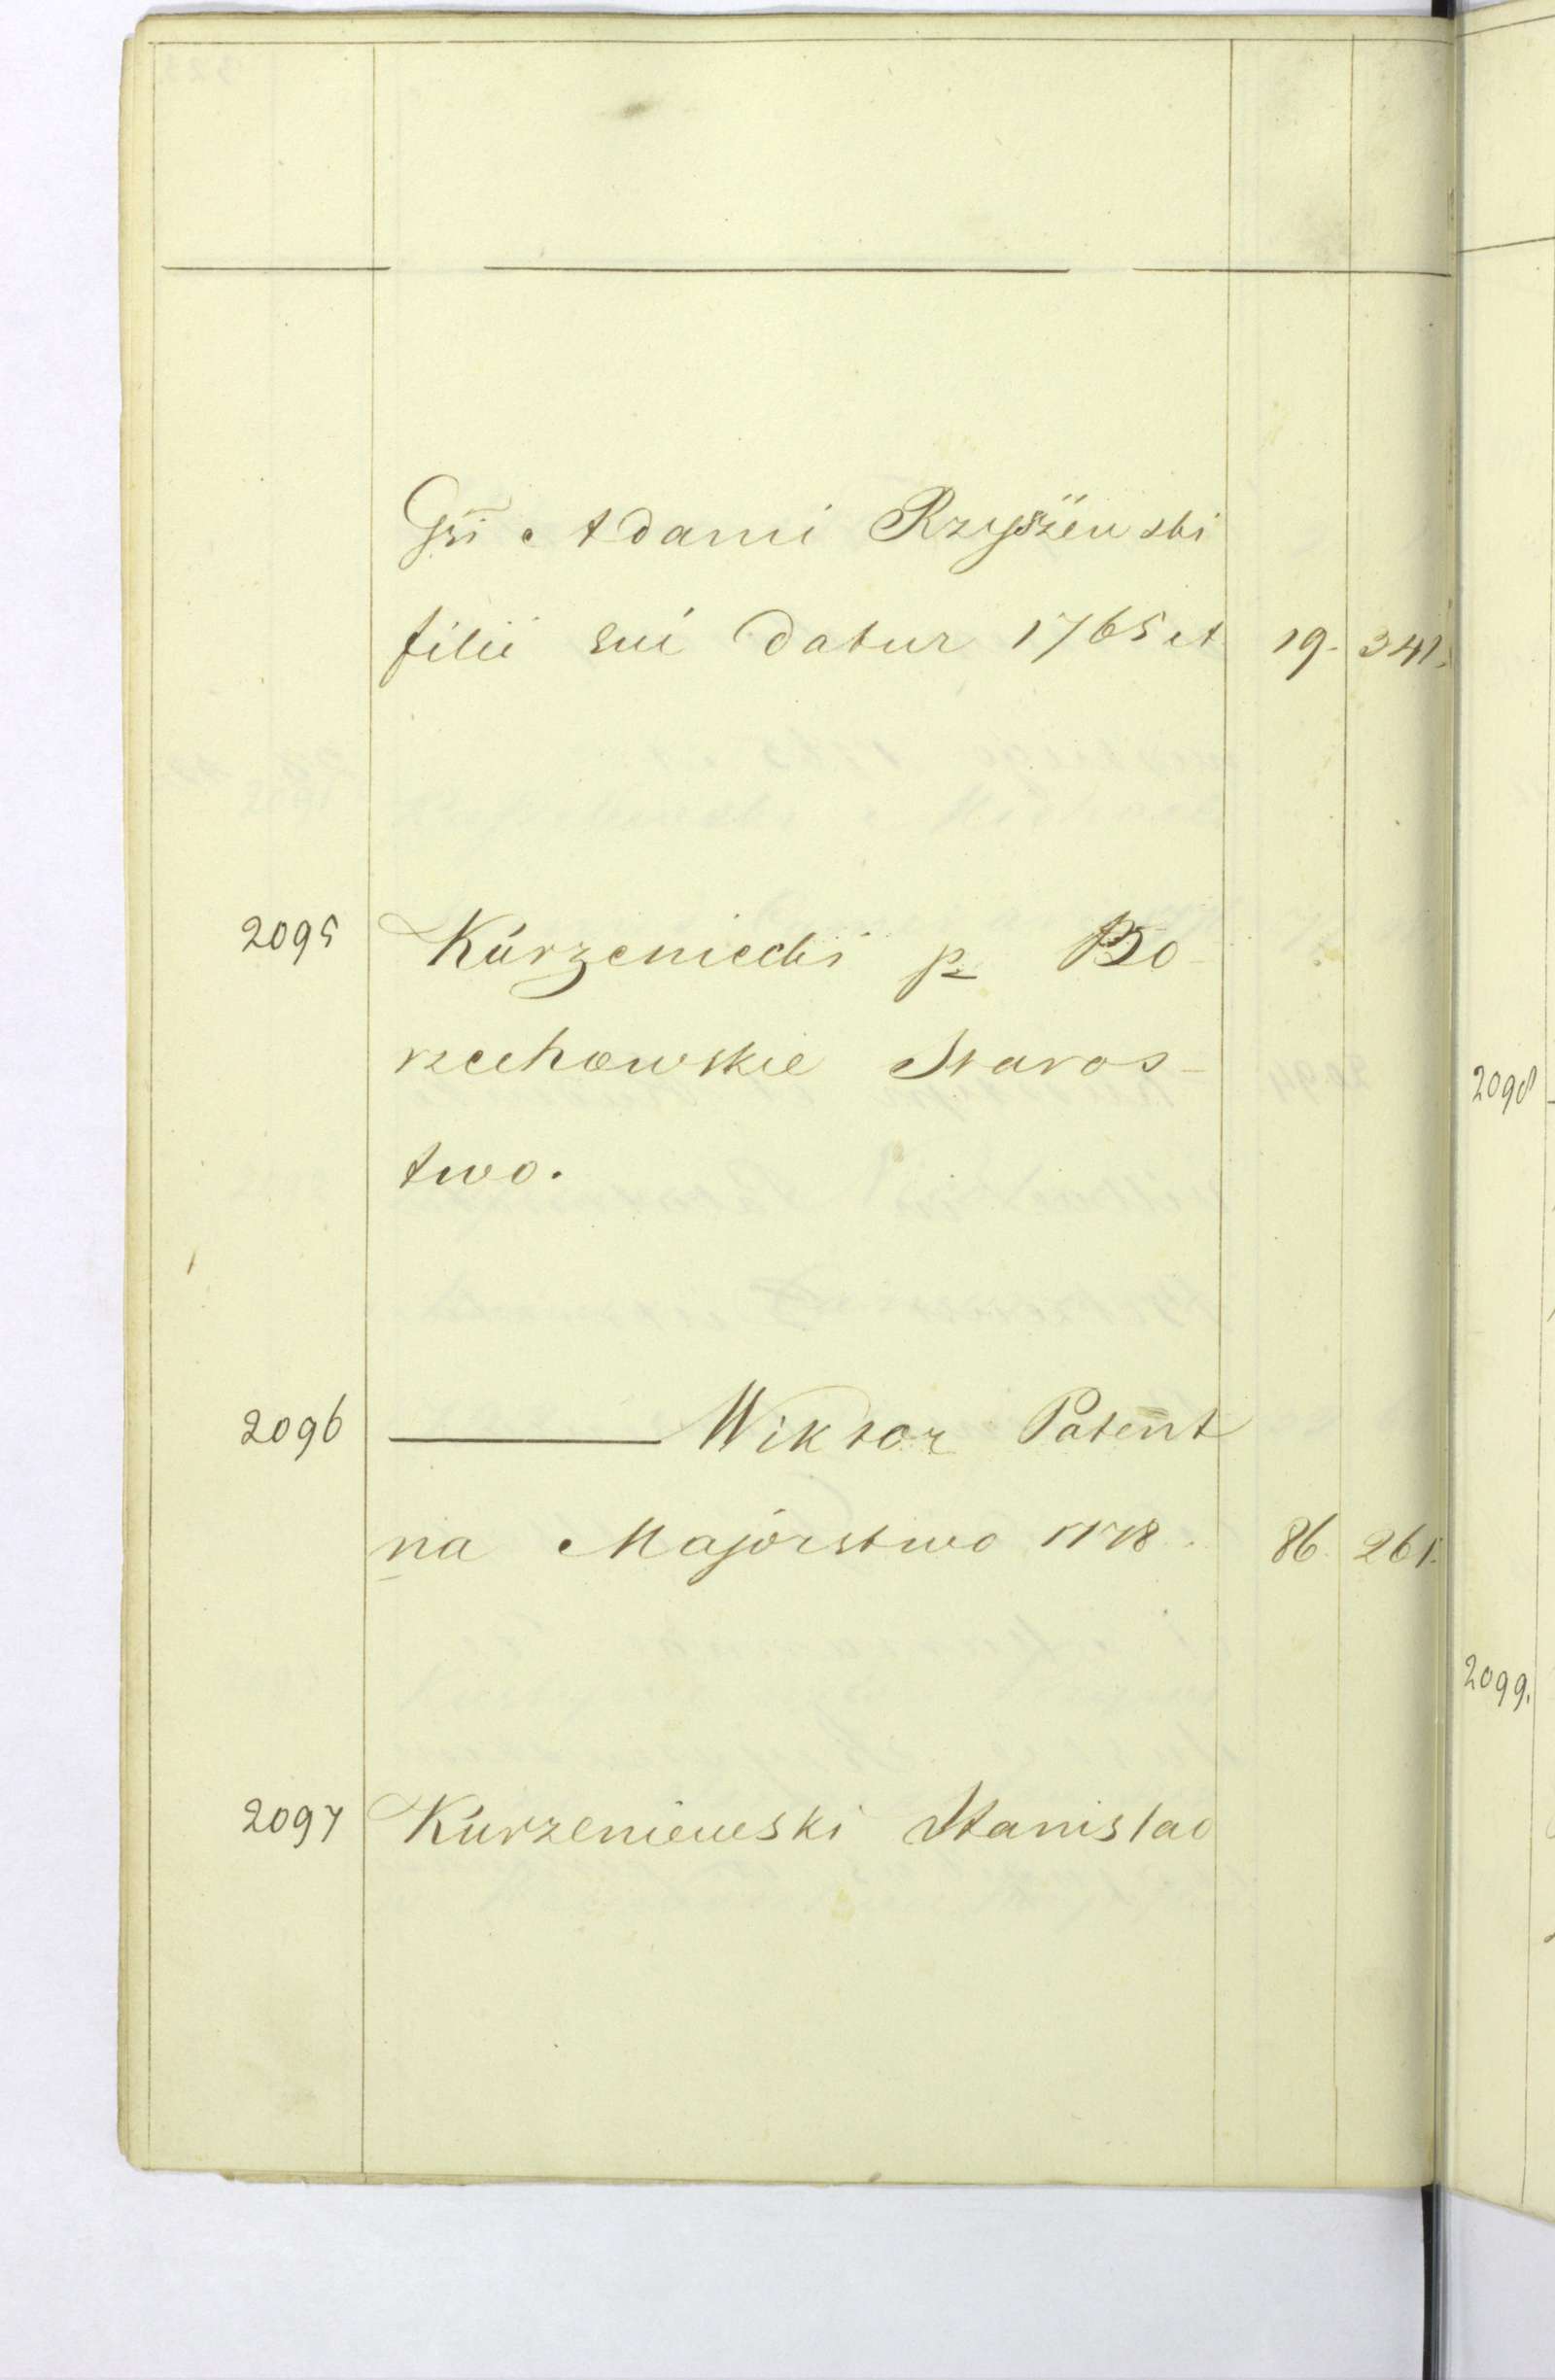 Gsi Adami Rzyszewski
filii sui datur 1765 et 19. 341.
2095 Kurzeniecki p Bo-
rzechowskie Staros-
two.
2096 ——— Wiktor Patent
na Majorstwo 1778. 86. 261.
2097 Kurzeniewski Stanislao
2098
2099.